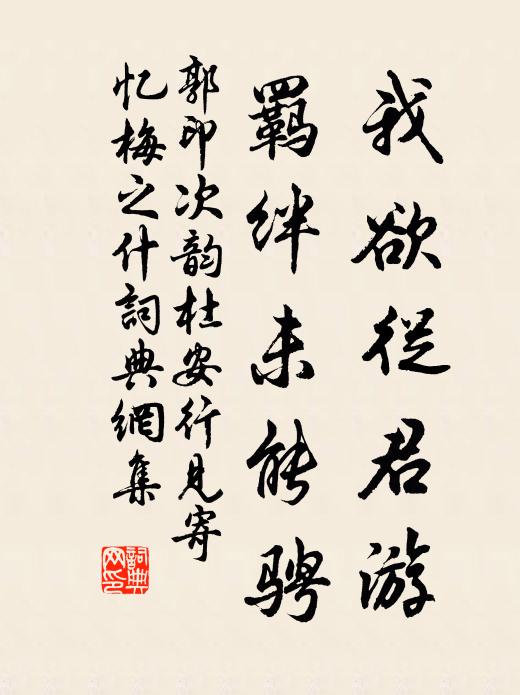 我欲從君游
羈絆未能骋
郭印次韵杜安行見寄
忆梅之什詞典網集
詞典网印